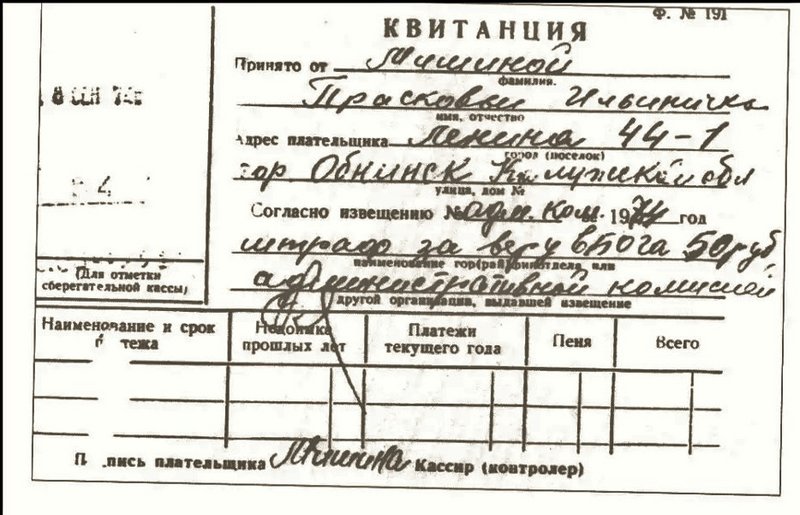 Ф. № 191
КВИТАНЦИЯ
Принято от Мишиной
фамилия.
Прасковьи Ильиничны
имя, отчество
Адрес плательщика Ленина 44-1
город (поселок)
гор Обнинск Калужской обл
улица, дом №
Согласно извещению № адм. ком. 1974 год
штраф за веру в Бога 50 руб
наименование гор(рай)финотдела или
административной комиссией
другой организации, выдавшей извещение
8 СЕН 74
4
(Для отметки
сберегательной кассы)
Наименование и срок
тежа
Недоимка
прошлых лет
Платежи
текущего года
Пеня
Всего
П пись плательщика Мишина Кассир (контролер)